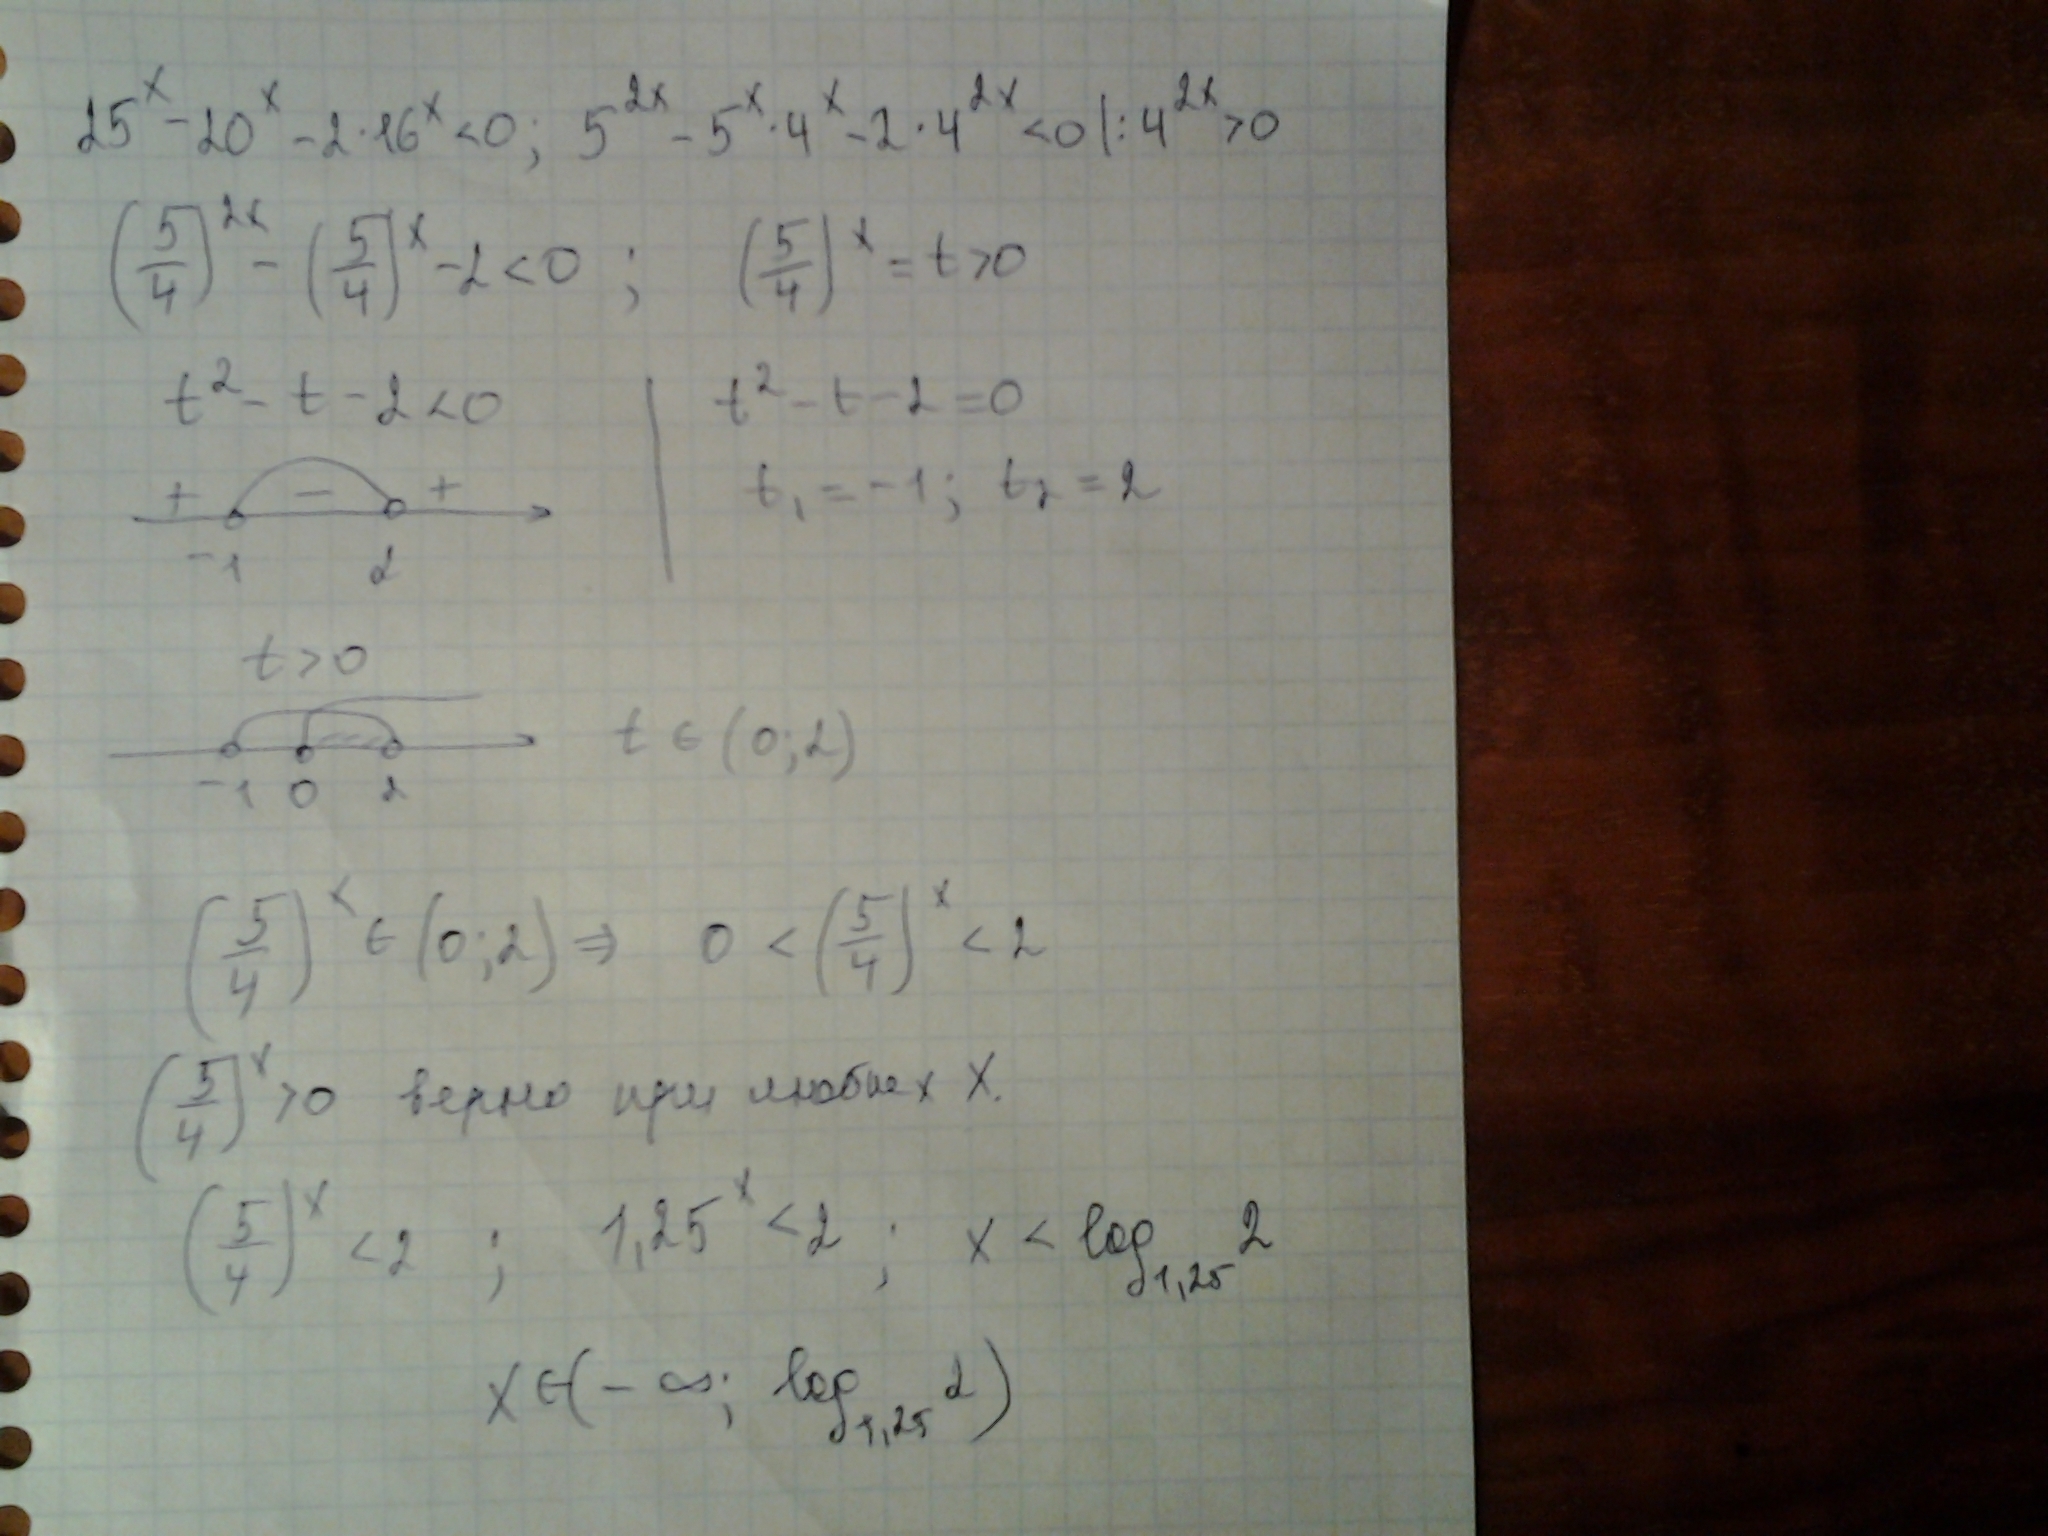 25^x - 20^x - 2·16^x < 0; 5^{2x} - 5^x·4^x - 2·4^{2x} < 0 |: 4^{2x} > 0
(5/4)^{2x} - (5/4)^x - 2 < 0 ; (5/4)^x = t > 0
t² - t - 2 < 0 | t² - t - 2 = 0
+ - +
t₁ = -1; t₂ = 2
-1 2
t > 0
t ∈ (0;2)
-1 0 2
(5/4)^x ∈ (0;2) ⇒ 0 < (5/4)^x < 2
(5/4)^x > 0 верно при любых x.
(5/4)^x < 2 ; 1,25^x < 2 ; x < log_{1,25} 2
x ∈ (-∞; log_{1,25} 2)